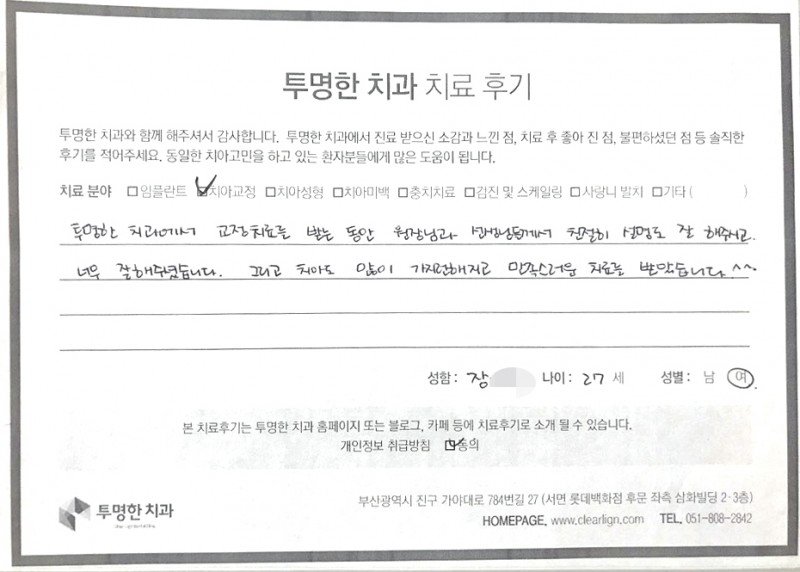 투명한 치과 치료 후기
투명한 치과와 함께 해주셔서 감사합니다. 투명한 치과에서 진료 받으신 소감과 느낀 점, 치료 후 좋아 진 점, 불편하셨던 점 등 솔직한
후기를 적어주세요. 동일한 치아고민을 하고 있는 환자분들에게 많은 도움이 됩니다.
치료 분야 □임플란트 ☑치아교정 □치아성형 □치아미백 □충치치료 □검진 및 스케일링 □사랑니 발치 □기타 ( )
투명한 치과에서 교정치료를 받는 동안 원장님과 선생님들께서 친절히 설명도 잘 해주시고
너무 잘해주셨습니다. 그리고 치아도 많이 가지런해지고 만족스러운 치료를 받았습니다^^
성함 : 장 나이 : 27 세 성별 : 남 여
본 치료후기는 투명한 치과 홈페이지 또는 블로그, 카페 등에 치료후기로 소개 될 수 있습니다.
개인정보 취급방침 ☑동의
투명한 치과
부산광역시 진구 가야대로 784번길 27 (서면 롯데백화점 후문 좌측 삼화빌딩 2·3층)
HOMEPAGE. www.clearlign.com TEL. 051-808-2842